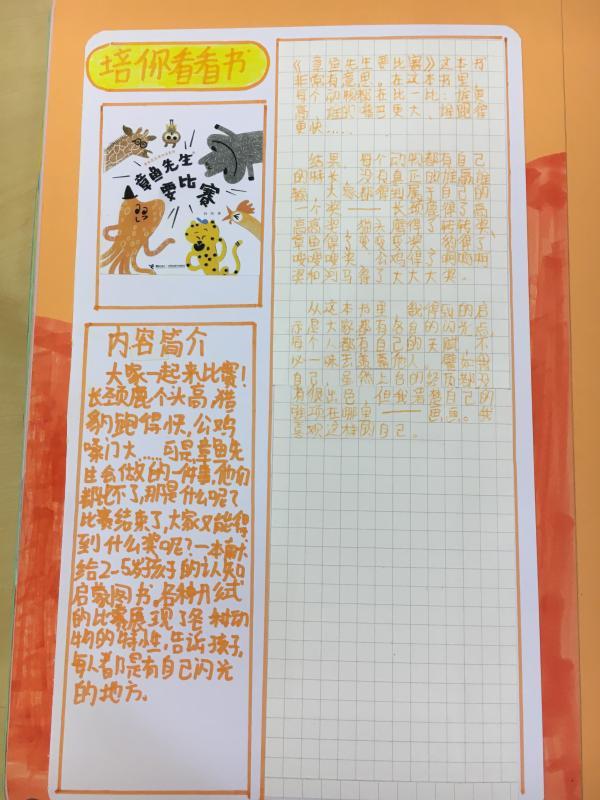 培你看看书
章鱼先生
要比赛
内容简介
大家一起来比赛!
长颈鹿个头高,猎
豹跑得快,公鸡
嗓门大……可是章鱼先
生会做的一件事,他们
都比不了,那是什么呢?
比赛结束了,大家又能得
到什么奖呢?一本献
给2-5岁孩子的认知
启蒙图书。各种形式
的比赛展现了各种动
物的特性,告诉孩子,
每人都是有自己闪光
的地方。
《章鱼先生要比赛》这本书
非常有意思。在这本书里
每个动物都在比一比:谁更
高,谁的嗓子更大、谁跑得
更快……
结果,每个动物都有自己
的特长,没有真正的谁赢谁
输,大家都得到属于自己的
一个奖——长颈鹿得了高
高高奖,
章鱼得了变变变奖,豹得了
嗖嗖嗖奖,公鸡得了啊啊啊
奖和河马得了大大大奖。
从这本书里,我得到的启
示是大家都有各自的闪光点,
每个人都有自己的天赋,不
以一味去羡慕他人,譬如我
自己,虽然上台的经历都没
有很出色,但我清楚自己的
强项在哪里——画画。我
喜欢这样的自己。